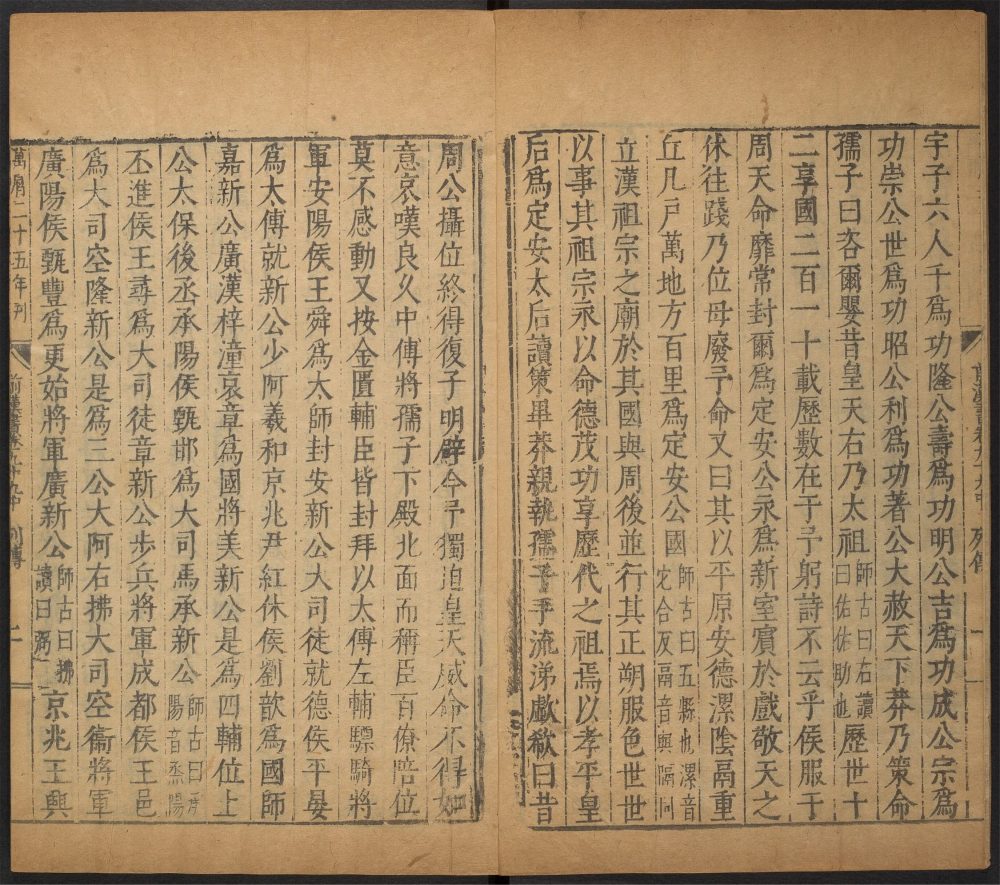 宇子六人千爲功隆公壽爲功明公吉爲功成公宗爲
功崇公世爲功昭公利爲功著公大赦天下莽乃策命
孺子曰咨爾嬰昔皇天右乃太祖師古曰右讀曰佑佑助也歷世十
二享國二百一十載歷數在于予躬詩不云乎侯服于
周天命靡常封爾爲定安公永爲新室賓於戲敬天之
休往踐乃位毋廢予命又曰其以平原安德漯陰鬲重
丘凡戸萬地方百里爲定安公國師古曰五縣也漯音它合反鬲音與隔同
立漢祖宗之廟於其國與周後並行其正朔服色世世
以事其祖宗永以命德茂功享歷代之祖焉以孝平皇
后爲定安太后讀策畢莽親執孺子手流涕歔欷曰昔
周公攝位終得復子明辟今予獨迫皇天威命不得如
意哀嘆良久中傅將孺子下殿北面而稱臣百僚陪位
莫不感動又按金匱輔臣皆封拜以太傅左輔驃騎將
軍安陽侯王舜爲太師封安新公大司徒就德侯平晏
爲太傅就新公少阿羲和京兆尹紅休侯劉歆爲國師
嘉新公廣漢梓潼哀章爲國將美新公是爲四輔位上
公太保後丞承陽侯甄邯爲大司馬承新公師古曰承陽音烝陽
丕進侯王尋爲大司徒章新公步兵將軍成都侯王邑
爲大司空隆新公是爲三公大阿右拂大司空衞將軍
廣陽侯甄豐爲更始將軍廣新公師古曰拂讀曰弼京兆王興
萬曆二十五年刊
前漢書卷九十九中 列傳 二
前漢書卷九十九中 列傳